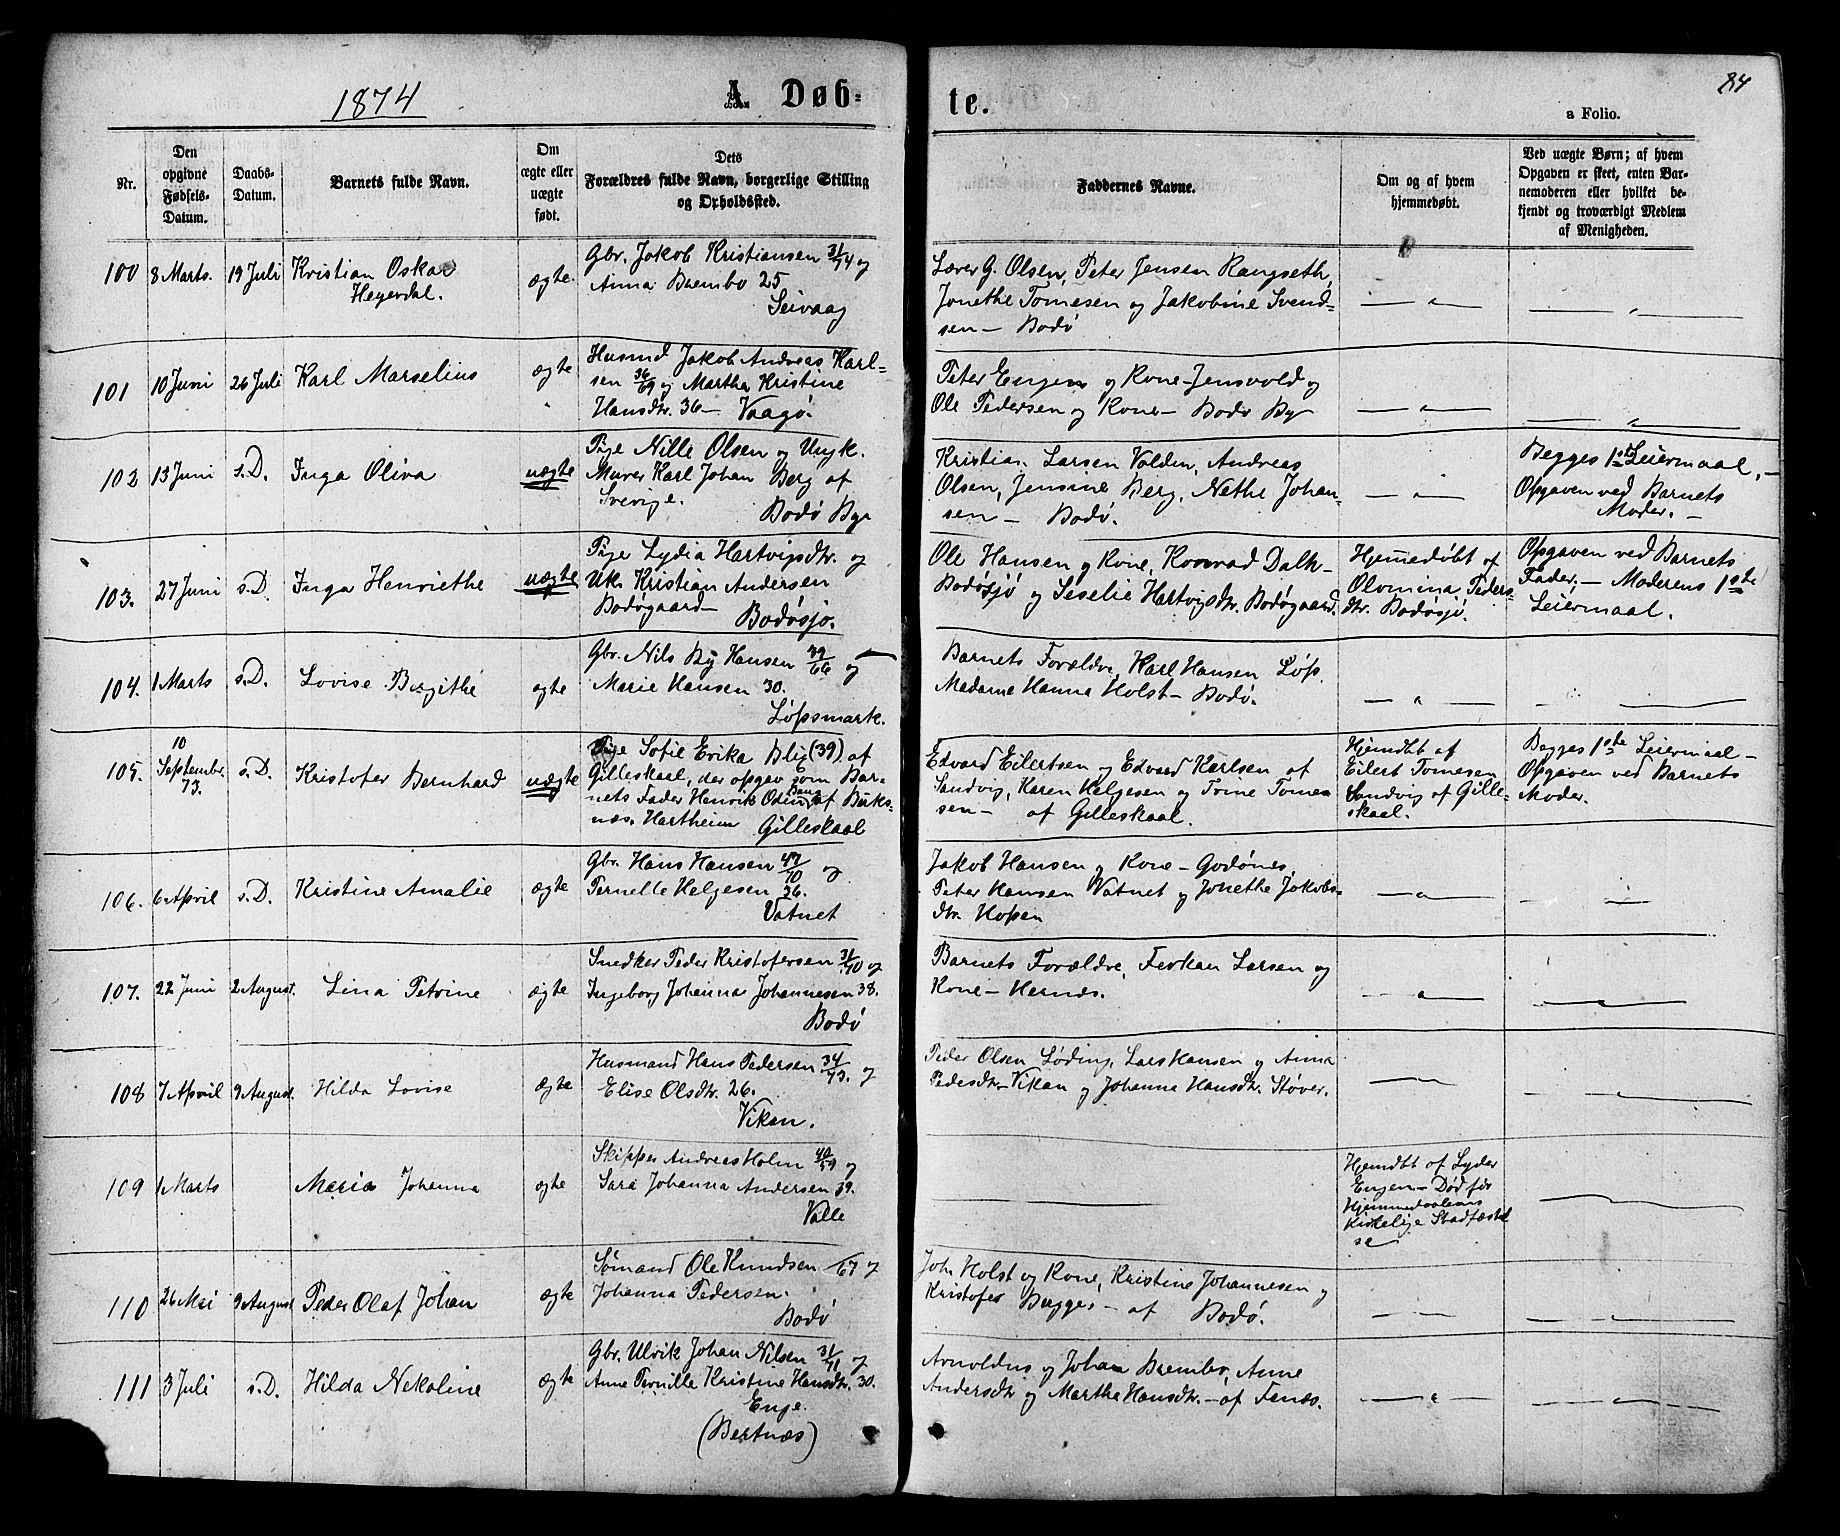 1874
A Døb-
te.
84
a Folio.
Nr.
Den
opgivne
Fødsels-
Datum.
Daabs-
Datum.
Barnets fulde Navn.
Om
ægte eller
uægte
født.
Dets
Forældres fulde Navn, borgerlige Stilling
og Opholdssted.
Faddernes Navne.
Om og af hvem
hjemmedøbt.
Ved uægte Børn; af hvem
Opgaven er skeet, enten Bar-
nemoderen eller hvilket be-
kjendt og troværdigt Medlem
af Menigheden.
100 8 Marts. 19 Juli Kristian Oskar
Heyerdal.
ægte
Gbr. Jakob Kristiansen 31/74 og
Anna Brembo 25
Seivaag
Lærer G. Olsen, Peter Jensen Rangseth,
Jonethe Tomesen og Jakobine Svend-
sen – Bodø
101 10 Juni 26 Juli Karl Marselius
ægte
Husmd Jakob Andreas Karl-
sen 36/69 og Martha Kristine
Hansdtr. 36 – Vaagø.
Peter Engen og Kone – Jensvold og
Ole Pedersen og Kone – Bodø By
102 13 Juni s.D. Inga Oliva
uægte
Pige Nille Olsen og Ungk.
Murer Karl Johan Berg af
Sverige. Bodø By
Kristian Larsen Volden, Andreas
Olsen, Jensine Berg, Nethe Johan-
sen – Bodø.
Begges 1ste Leiermaal, –
Opgaven ved Barnets
Moder. –
103. 27 Juni s.D. Inga Henriethe
uægte
Pige Lydia Hartvigsdtr. og
Uk. Kristian Andersen
Bodøgaard – Bodøsjø.
Ole Hansen og Kone, Konrad Dalk-
Bodøsjø og Seselie Hartvigsdtr. Bodøgaard.
Hjemmedøbt af
Olomina Peders-
dtr. Bodøsjø.
Opgaven ved Barnets
Fader. – Moderens 1ste
Leiermaal.
104. 1 Marts s.D. Lovise Birgithe
ægte
Gbr. Nils By Hansen 39/66 og
Marie Hansen 30.
Løpsmark.
Barnets Forældre, Karl Hansen Løp.
Madame Hanna Holst – Bodø.
105. 10
Septembr.
73. s.D. Kristofer Bernhard
uægte
Pige Sofie Erika Blix (39) af
Gilleskaal, der opgav som Bar-
nets Fader Henrik Odin Bang af Buks-
næs. Hartheim Gilleskaal
Edvard Eilertsen og Edvard Karlsen af
Sandvig, Karen Helgesen og Tome Tome-
sen – af Gilleskaal.
Hjemdbt af
Eilert Tomesen
Sandvig af Gille-
skaal.
Begges 1ste Leiermaal –
Opgaven ved Barnets
Moder.
106. 6 April s.D. Kristine Amalie
ægte
Gbr. Hans Hansen 47/70 og
Pernelle Helgesen 26.
Vatnet
Jakob Hansen og Kone – Godønes,
Peter Hansen Vatnet og Jonethe Jakobs-
dtr. Hopen
107. 22 Juni 2 August. Lina Petrine
ægte
Snedker Peder Kristofersen 31/70 og
Ingeborg Johanna Johannesen 38.
Bodø
Barnets Forældre, Larsen og
Kone – Hernæs.
108 7 April 9 August. Hilda Lovise
ægte
Husmand Hans Pedersen 34/73. og
Elise Olsdtr. 26.
Vikan.
Peder Olsen Løding, Lars Hansen og Anna
Pedesdtr. Vikan og Johanna Hansdtr. Støver.
109 1 Marts Maria Johanna
ægte
Skipper Andreas Holm 40/59 og
Sara Johanna Andersen 39.
Valle
Hjemdbt af Lyder
Engen – Død før
Hjemmedaabens
kirkelige Stadfæstel
se
110 26 Mai 9 August Peder Olaf Johan
ægte
Sømand Ole Knudsen –/67 og
Johanna Pedersen.
Bodø
Joh. Holst og Kone, Kristine Johannesen og
Kristofer Bugge, – af Bodø.
111 3 Juli s.D. Hilda Nekoline
ægte
Gbr. Ulrik Johan Nilsen 31/71 og
Anne Pernille Kristine Hansdtr. 30.
Enge.
(Bertnæs)
Arnoldus og Johan Brembo, Anne
Andersdtr og Marthe Hansdtr. – af Fenæs.